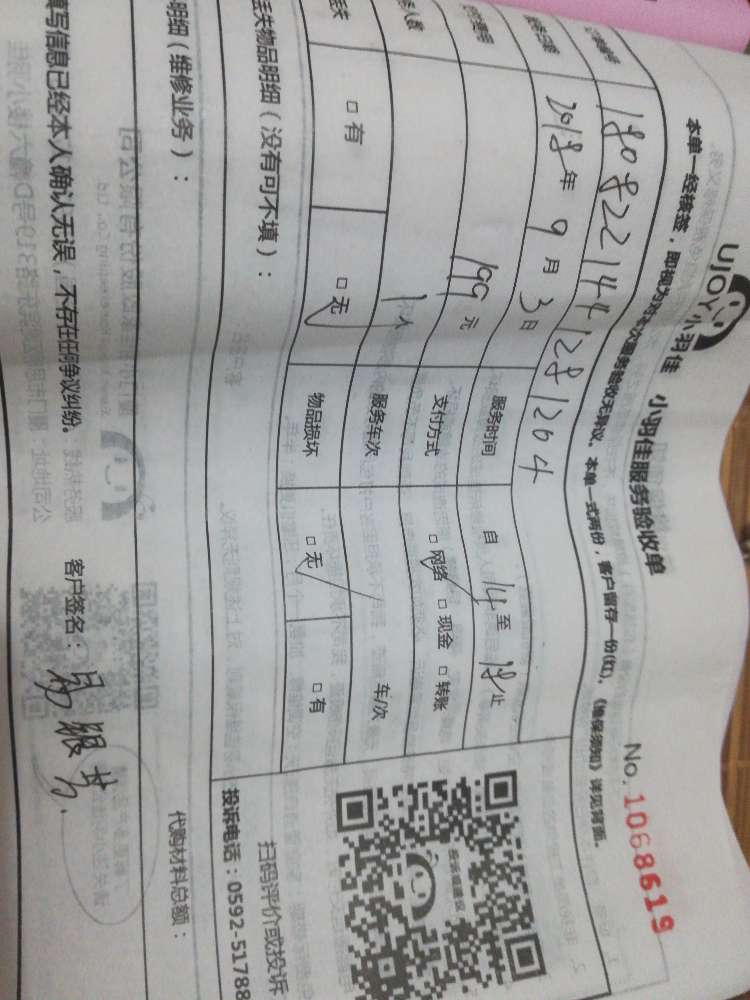 UJOY小羽佳 小羽佳服务验收单
No. 1068619
本单一经核签，即视为对本次服务验收无异议。本单一式两份，客户留存一份(红)。《维保须知》详见背面。
1808221441281204
2018年9月3日 服务时间 自 14 至 18 止
199元 支付方式 □ 网络 □ 现金 □ 转账
1人 服务车次 车/次
□ 有 □ 无 物品损坏 □ 无 □ 有
丢失物品明细（没有可不填）：
扫码评价或投诉
投诉电话：0592-51788
明细（维修业务）：
代购材料总额：
填写信息已经本人确认无误，不存在任何争议纠纷。 客户签名：